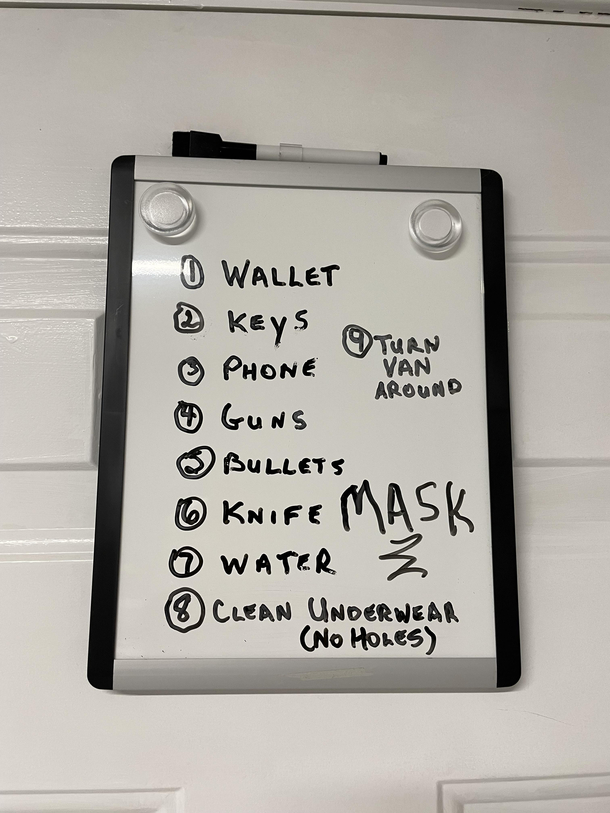 ① WALLET
② KEYS
③ PHONE
④ GUNS
⑤ BULLETS
⑥ KNIFE
⑦ WATER
⑧ CLEAN UNDERWEAR
(NO HOLES)
⑨ TURN
VAN
AROUND
MASK